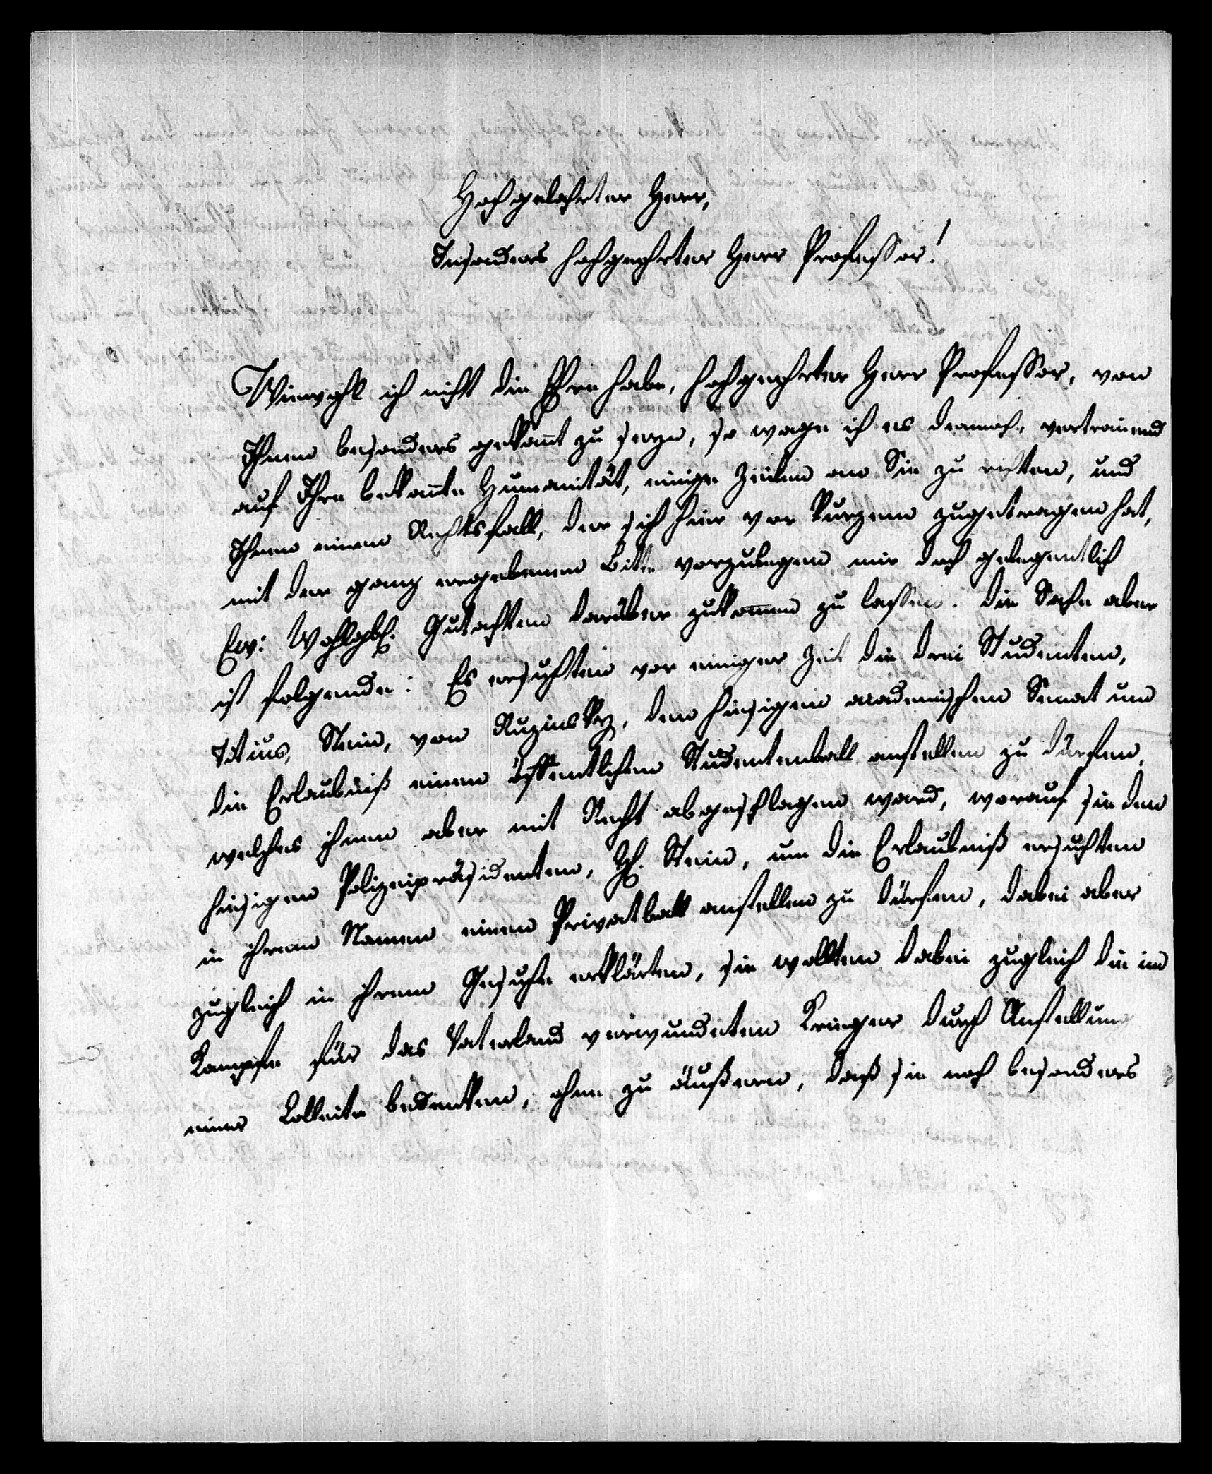 Hochgelehrter Herr,
Insonders hochgeehrter Herr Professor!
Wiewohl ich nicht die Ehre habe, hochgeehrter Herr Professor, von
Ihnen besonders gekannt zu seyn, so wage ich es dennoch, vertrauend
auf Ihre bekannte Humanität, einige Zeilen an Sie zu richten, und
Ihnen einen Rechtsfall, der sich hier vor Kurzem zugetragen hat,
mit der ganz ergebenen Bitte vorzulegen, mir doch gelegentlich
Ew: Wohlgb. Gutachten darüber zukommen zu lassen. Die Sache aber
ist folgende: Es ersuchten vor einiger Zeit die drei Studenten,
Titius, Stein, von Ruzinsky, den hiesigen academischen Senat um
die Erlaubniß einen öffentlichen Studentenball anstellen zu dürfen,
welches ihnen aber mit Recht abgeschlagen ward, worauf sie den
hiesigen Polizeipräsidenten, H. Stein, um die Erlaubniß ersuchten
in ihrem Namen einen Privatball anstellen zu dürfen, dabei aber
zugleich in ihrem Gesuche erklärten, sie wollten dabei zugleich die im
Kampfe für das Vaterland verwundeten Krieger durch Anstellung
einer Collecte bedenken, ohne zu äußern, daß sie noch besonders